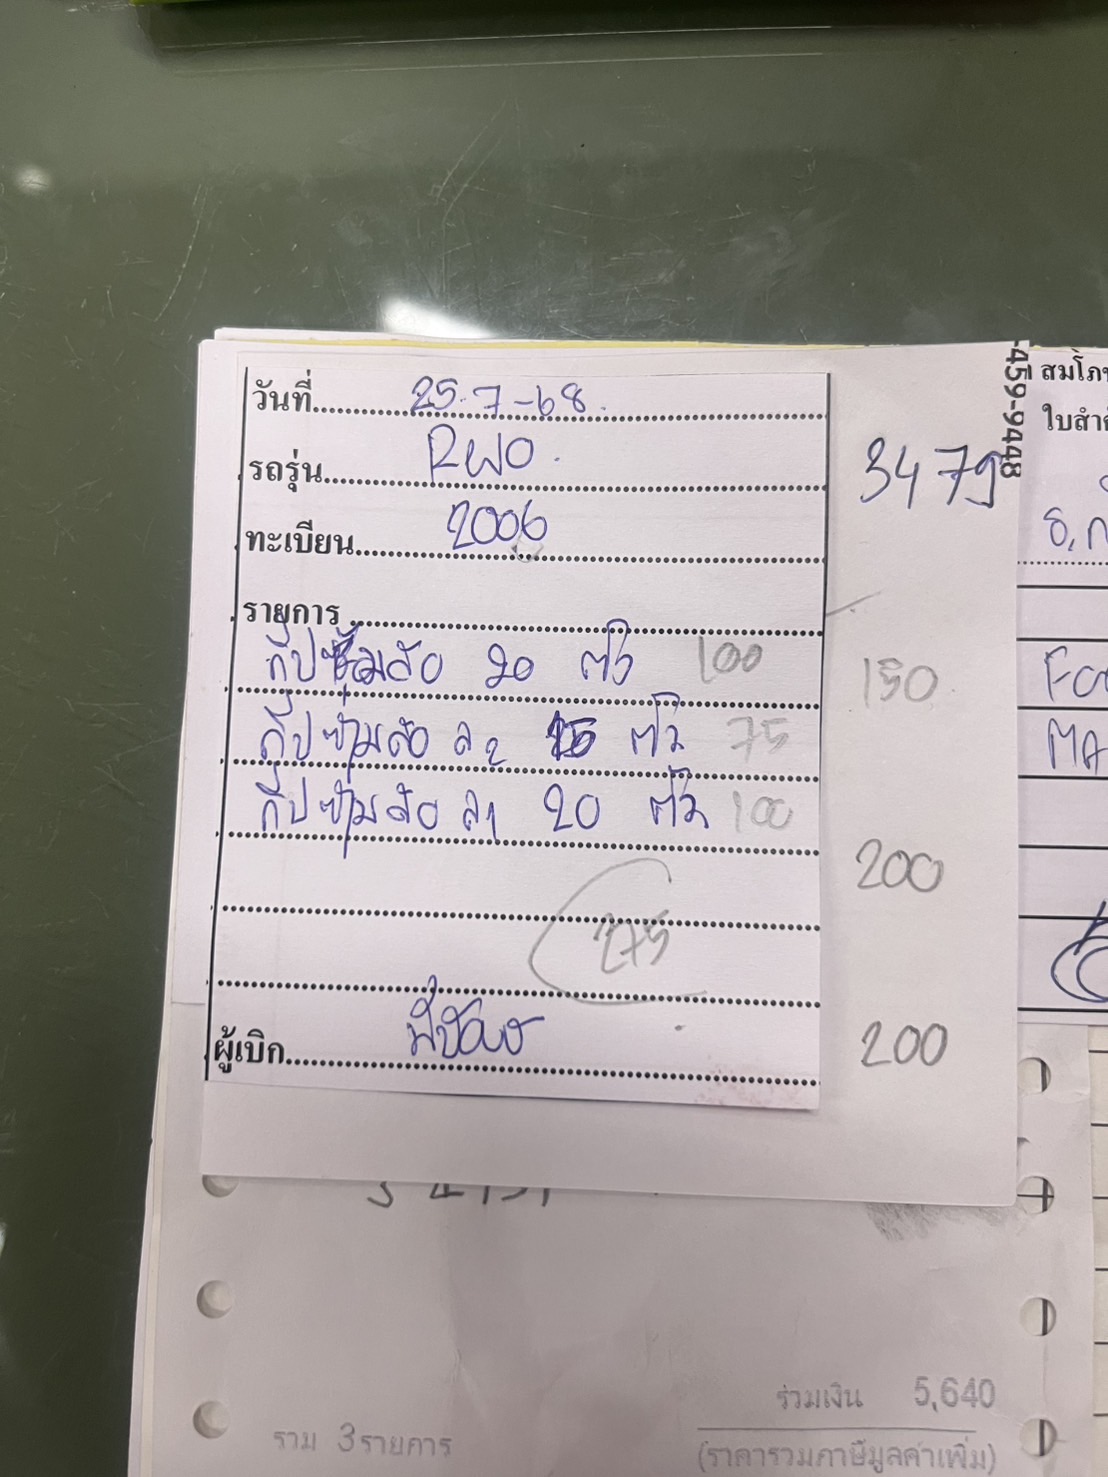 วันที่ 25-7-68.
รถรุ่น RWO.
ทะเบียน 2006
รายการ
กิ๊ปซุ้มล้อ 20 ตัว 100
กิ๊ปซุ้มล้อ ล2 15 ตัว 75
กิ๊ปซุ้มล้อ ล1 20 ตัว 100
275
ผู้เบิก
3479
150
200
200
-459-9448
สมโภช
ใบสำ
MA
รวม 3 รายการ
รวมเงิน 5,640
(ราคารวมภาษีมูลค่าเพิ่ม)